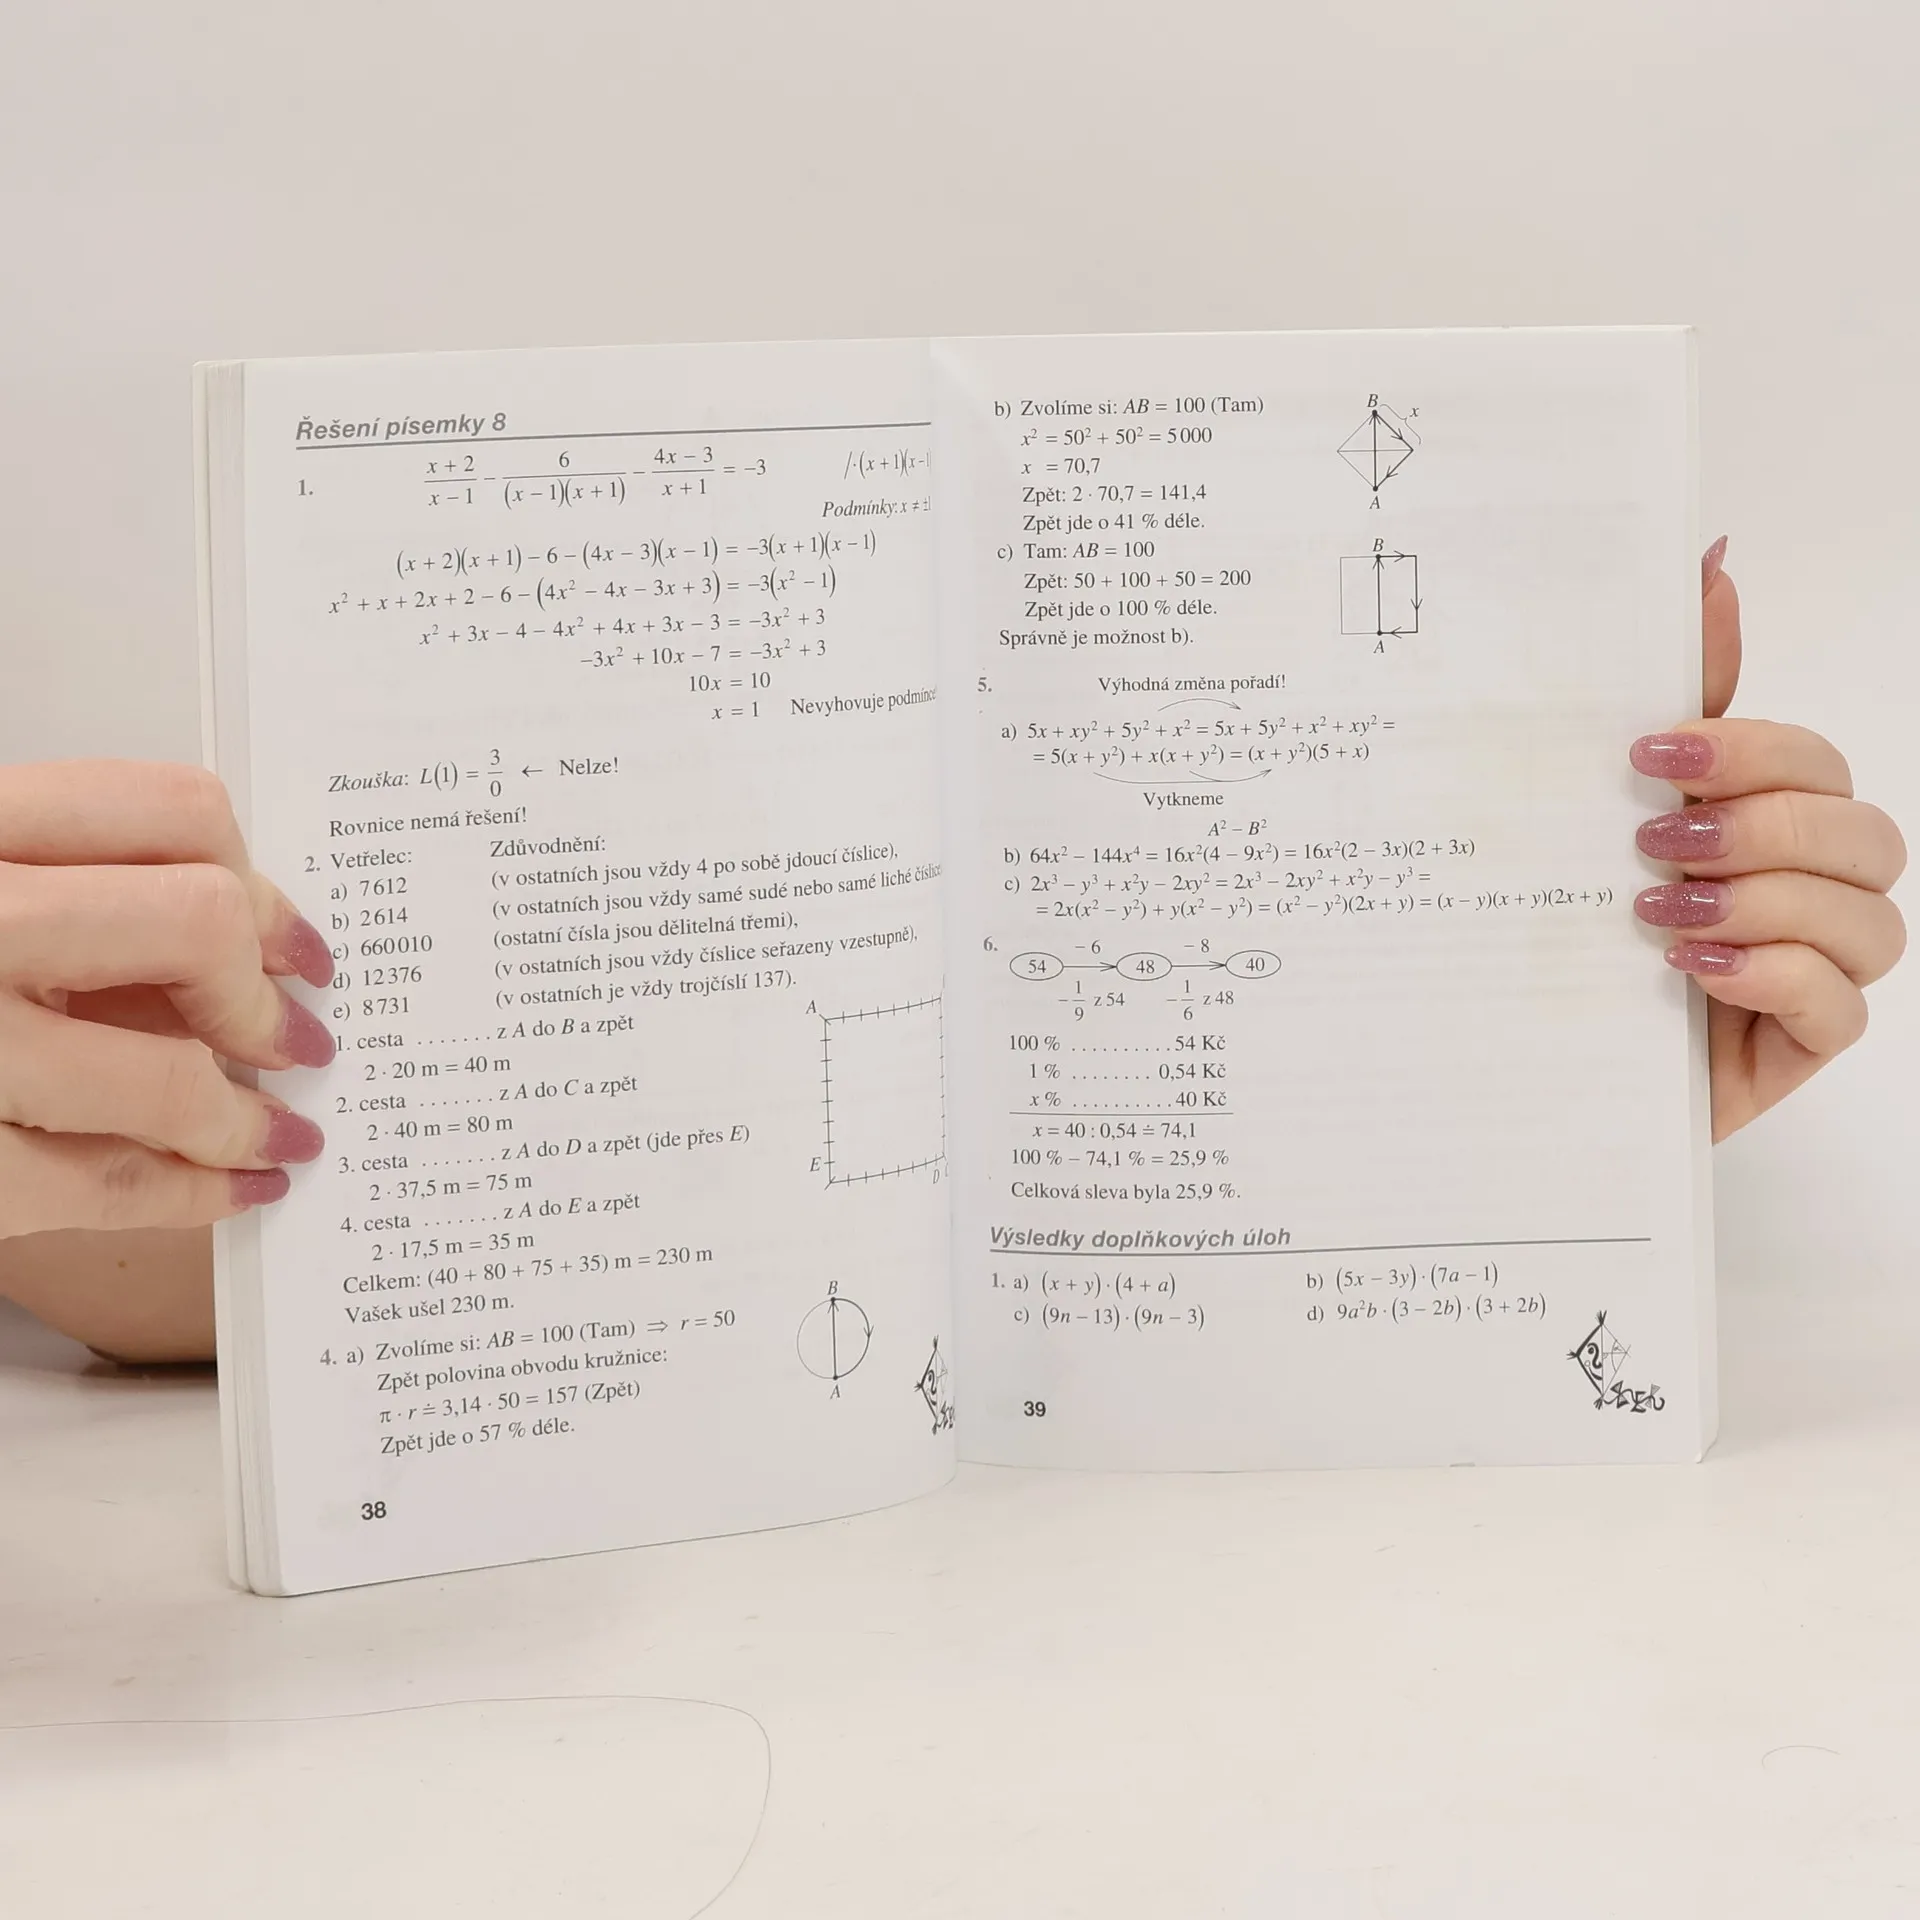 Řešení písemky 8
1. x + 2 / x − 1 − 6 / (x − 1)(x + 1) − 4x − 3 / x + 1 = −3 /·(x + 1)(x−1
Podmínky: x ≠ ±1
(x + 2)(x + 1) − 6 − (4x − 3)(x − 1) = −3(x + 1)(x − 1)
x² + x + 2x + 2 − 6 − (4x² − 4x − 3x + 3) = −3(x² − 1)
x² + 3x − 4 − 4x² + 4x + 3x − 3 = −3x² + 3
−3x² + 10x − 7 = −3x² + 3
10x = 10
x = 1 Nevyhovuje
Zkouška: L(1) = 3/0 ← Nelze!
Rovnice nemá řešení!
2. Vetřelec: Zdůvodnění:
a) 7612 (v ostatních jsou vždy 4 po sobě jdoucí číslice),
b) 2614 (v ostatních jsou vždy samé sudé nebo samé liché
c) 660010 (ostatní čísla jsou dělitelná třemi),
d) 12376 (v ostatních jsou vždy číslice seřazeny vzestupně),
e) 8731 (v ostatních je vždy trojčíslí 137).
1. cesta ....... z A do B a zpět
2 · 20 m = 40 m
2. cesta ....... z A do C a zpět
2 · 40 m = 80 m
3. cesta ....... z A do D a zpět (jde přes E)
2 · 37,5 m = 75 m
4. cesta ....... z A do E a zpět
2 · 17,5 m = 35 m
Celkem: (40 + 80 + 75 + 35) m = 230 m
Vašek ušel 230 m.
A
E
D
4. a) Zvolíme si: AB = 100 (Tam) ⇒ r = 50
Zpět polovina obvodu kružnice:
π · r ≐ 3,14 · 50 = 157 (Zpět)
Zpět jde o 57 % déle.
B
A
38
b) Zvolíme si: AB = 100 (Tam)
x² = 50² + 50² = 5000
x = 70,7
Zpět: 2 · 70,7 = 141,4
Zpět jde o 41 % déle.
B
x
A
c) Tam: AB = 100
Zpět: 50 + 100 + 50 = 200
Zpět jde o 100 % déle.
Správně je možnost b).
B
A
5. Výhodná změna pořadí!
a) 5x + xy² + 5y² + x² = 5x + 5y² + x² + xy² =
= 5(x + y²) + x(x + y²) = (x + y²)(5 + x)
Vytkneme
A² − B²
b) 64x² − 144x⁴ = 16x²(4 − 9x²) = 16x²(2 − 3x)(2 + 3x)
c) 2x³ − y³ + x²y − 2xy² = 2x³ − 2xy² + x²y − y³ =
= 2x(x² − y²) + y(x² − y²) = (x² − y²)(2x + y) = (x − y)(x + y)(2x + y)
6. − 6 − 8
54 48 40
− 1/9 z 54 − 1/6 z 48
100 % .......... 54 Kč
1 % ........ 0,54 Kč
x % .......... 40 Kč
x = 40 : 0,54 ≐ 74,1
100 % − 74,1 % = 25,9 %
Celková sleva byla 25,9 %.
Výsledky doplňkových úloh
1. a) (x + y) · (4 + a) b) (5x − 3y) · (7a − 1)
c) (9n − 13) · (9n − 3) d) 9a²b · (3 − 2b) · (3 + 2b)
39